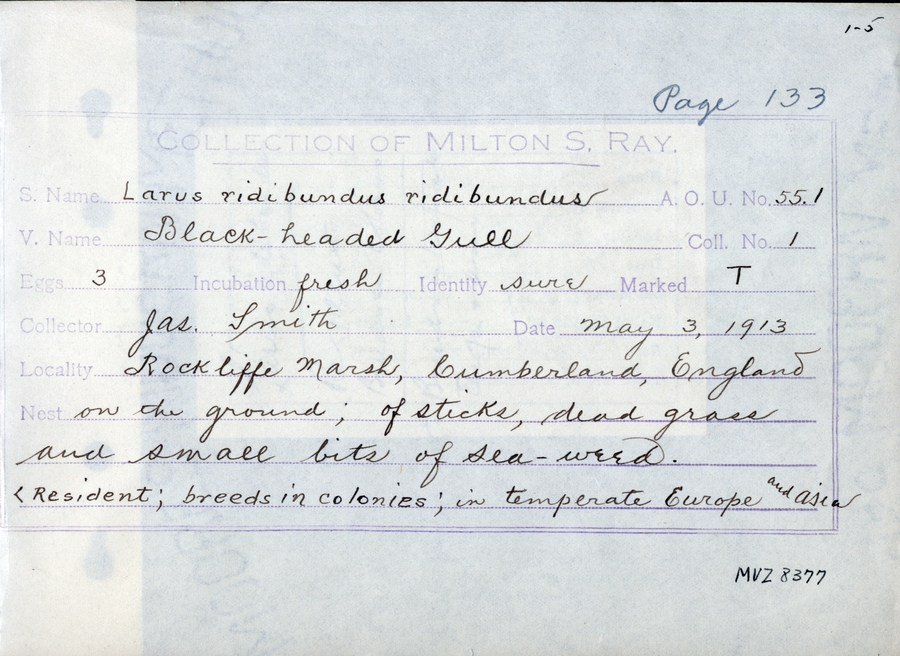 1-5
Page 133
COLLECTION OF MILTON S. RAY.
S. Name Larus ridibundus ridibundus A. O. U. No. 55.1
V. Name Black-headed Gull Coll. No. 1
Eggs 3 Incubation fresh Identity sure Marked T
Collector Jas. Smith Date May 3, 1913
Locality Rockliffe Marsh, Cumberland, England
Nest on the ground; of sticks, dead grass
and small bits of sea-weed.
<Resident; breeds in colonies; in temperate Europe and asia
MVZ 8377